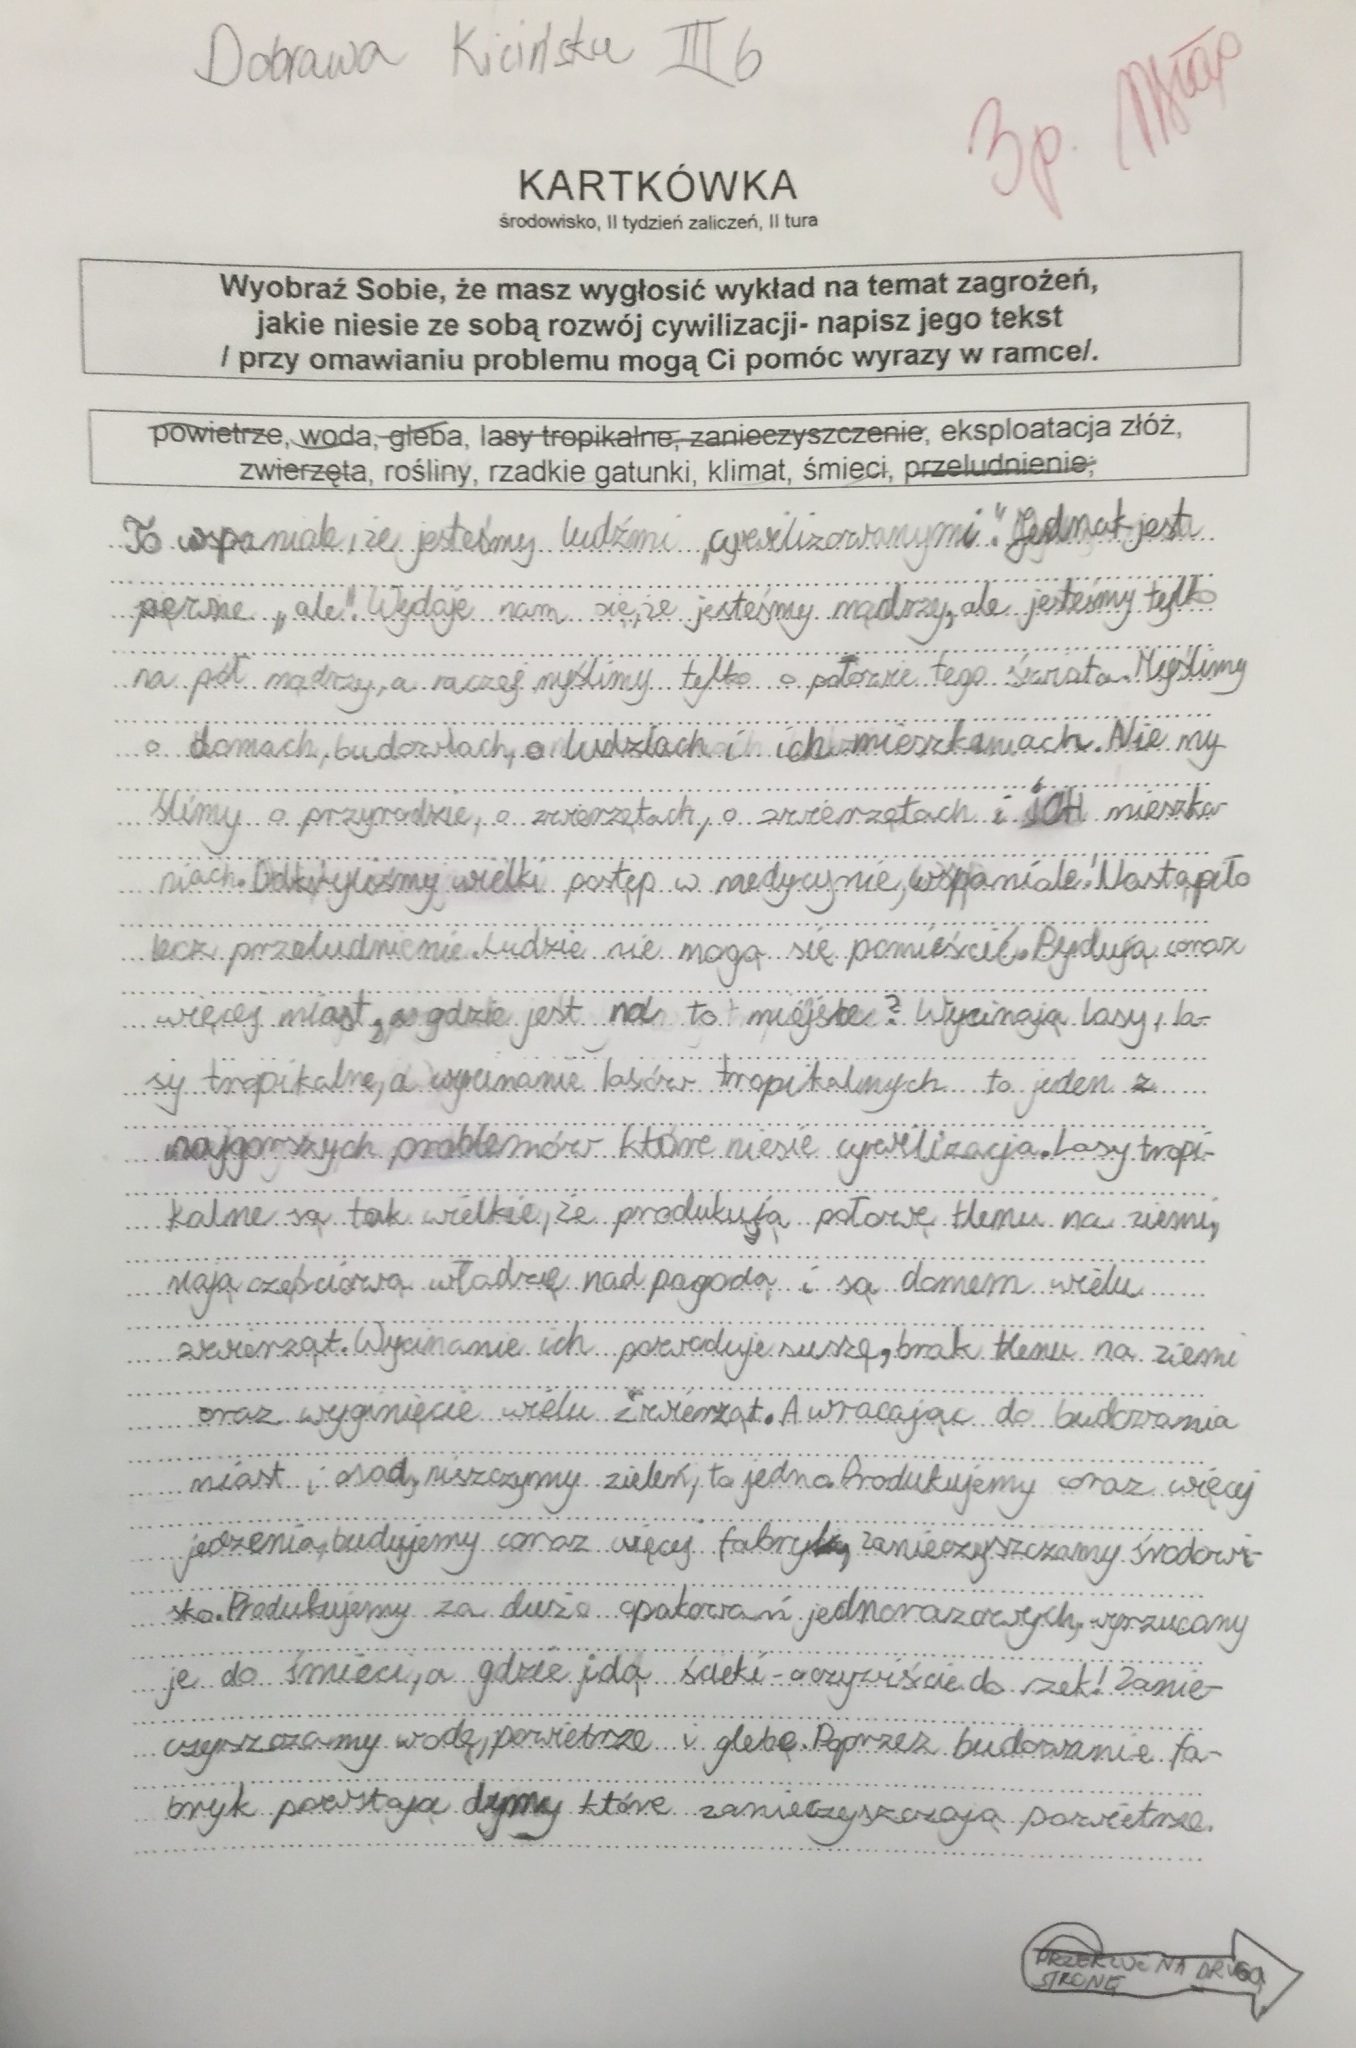 Dobrawa Kicińska III b
3 p.
KARTKÓWKA
środowisko, II tydzień zaliczeń, II tura
Wyobraź Sobie, że masz wygłosić wykład na temat zagrożeń,
jakie niesie ze sobą rozwój cywilizacji- napisz jego tekst
/ przy omawianiu problemu mogą Ci pomóc wyrazy w ramce/.
powietrze, woda, gleba, lasy tropikalne, zanieczyszczenie, eksploatacja złóż,
zwierzęta, rośliny, rzadkie gatunki, klimat, śmieci, przeludnienie;
To wspaniale, że jesteśmy ludźmi „cywilizowanymi". Jednak jest
pewne „ale". Wydaje nam się, że jesteśmy mądrzy, ale jesteśmy tylko
na pół mądrzy, a raczej myślimy tylko o połowie tego świata. Myślimy
o domach, budowlach, o ludziach i ich mieszkaniach. Nie my
ślimy o przyrodzie, o zwierzętach, o zwierzętach i ICH mieszka-
niach. Odkryliśmy wielki postęp w medycynie, wspaniale! Nastąpiło
lecz przeludnienie. Ludzie nie mogą się pomieścić. Budują coraz
więcej miast, a gdzie jest na to miejsce? Wycinają lasy, la-
sy tropikalne, a wycinanie lasów tropikalnych to jeden z
najgorszych problemów które niesie cywilizacja. Lasy tropi-
kalne są tak wielkie, że produkują połowę tlenu na ziemi,
mają częściową władzę nad pogodą i są domem wielu
zwierząt. Wycinanie ich powoduje suszę, brak tlenu na ziemi
oraz wyginięcie wielu zwierząt. A wracając do budowania
miast i osad, niszczymy zieleń, to jedno. Produkujemy coraz więcej
jedzenia, budujemy coraz więcej fabryk, zanieczyszczamy środowi-
sko. Produkujemy za dużo opakowań jednorazowych, wyrzucamy
je do śmieci, a gdzie idą ścieki - oczywiście do rzek! Zanie-
czyszczamy wodę, powietrze i glebę. Poprzez budowanie fa-
bryk powstają dymy które zanieczyszczają powietrze.
PRZEKLUC NA DRUGĄ
STRONĘ